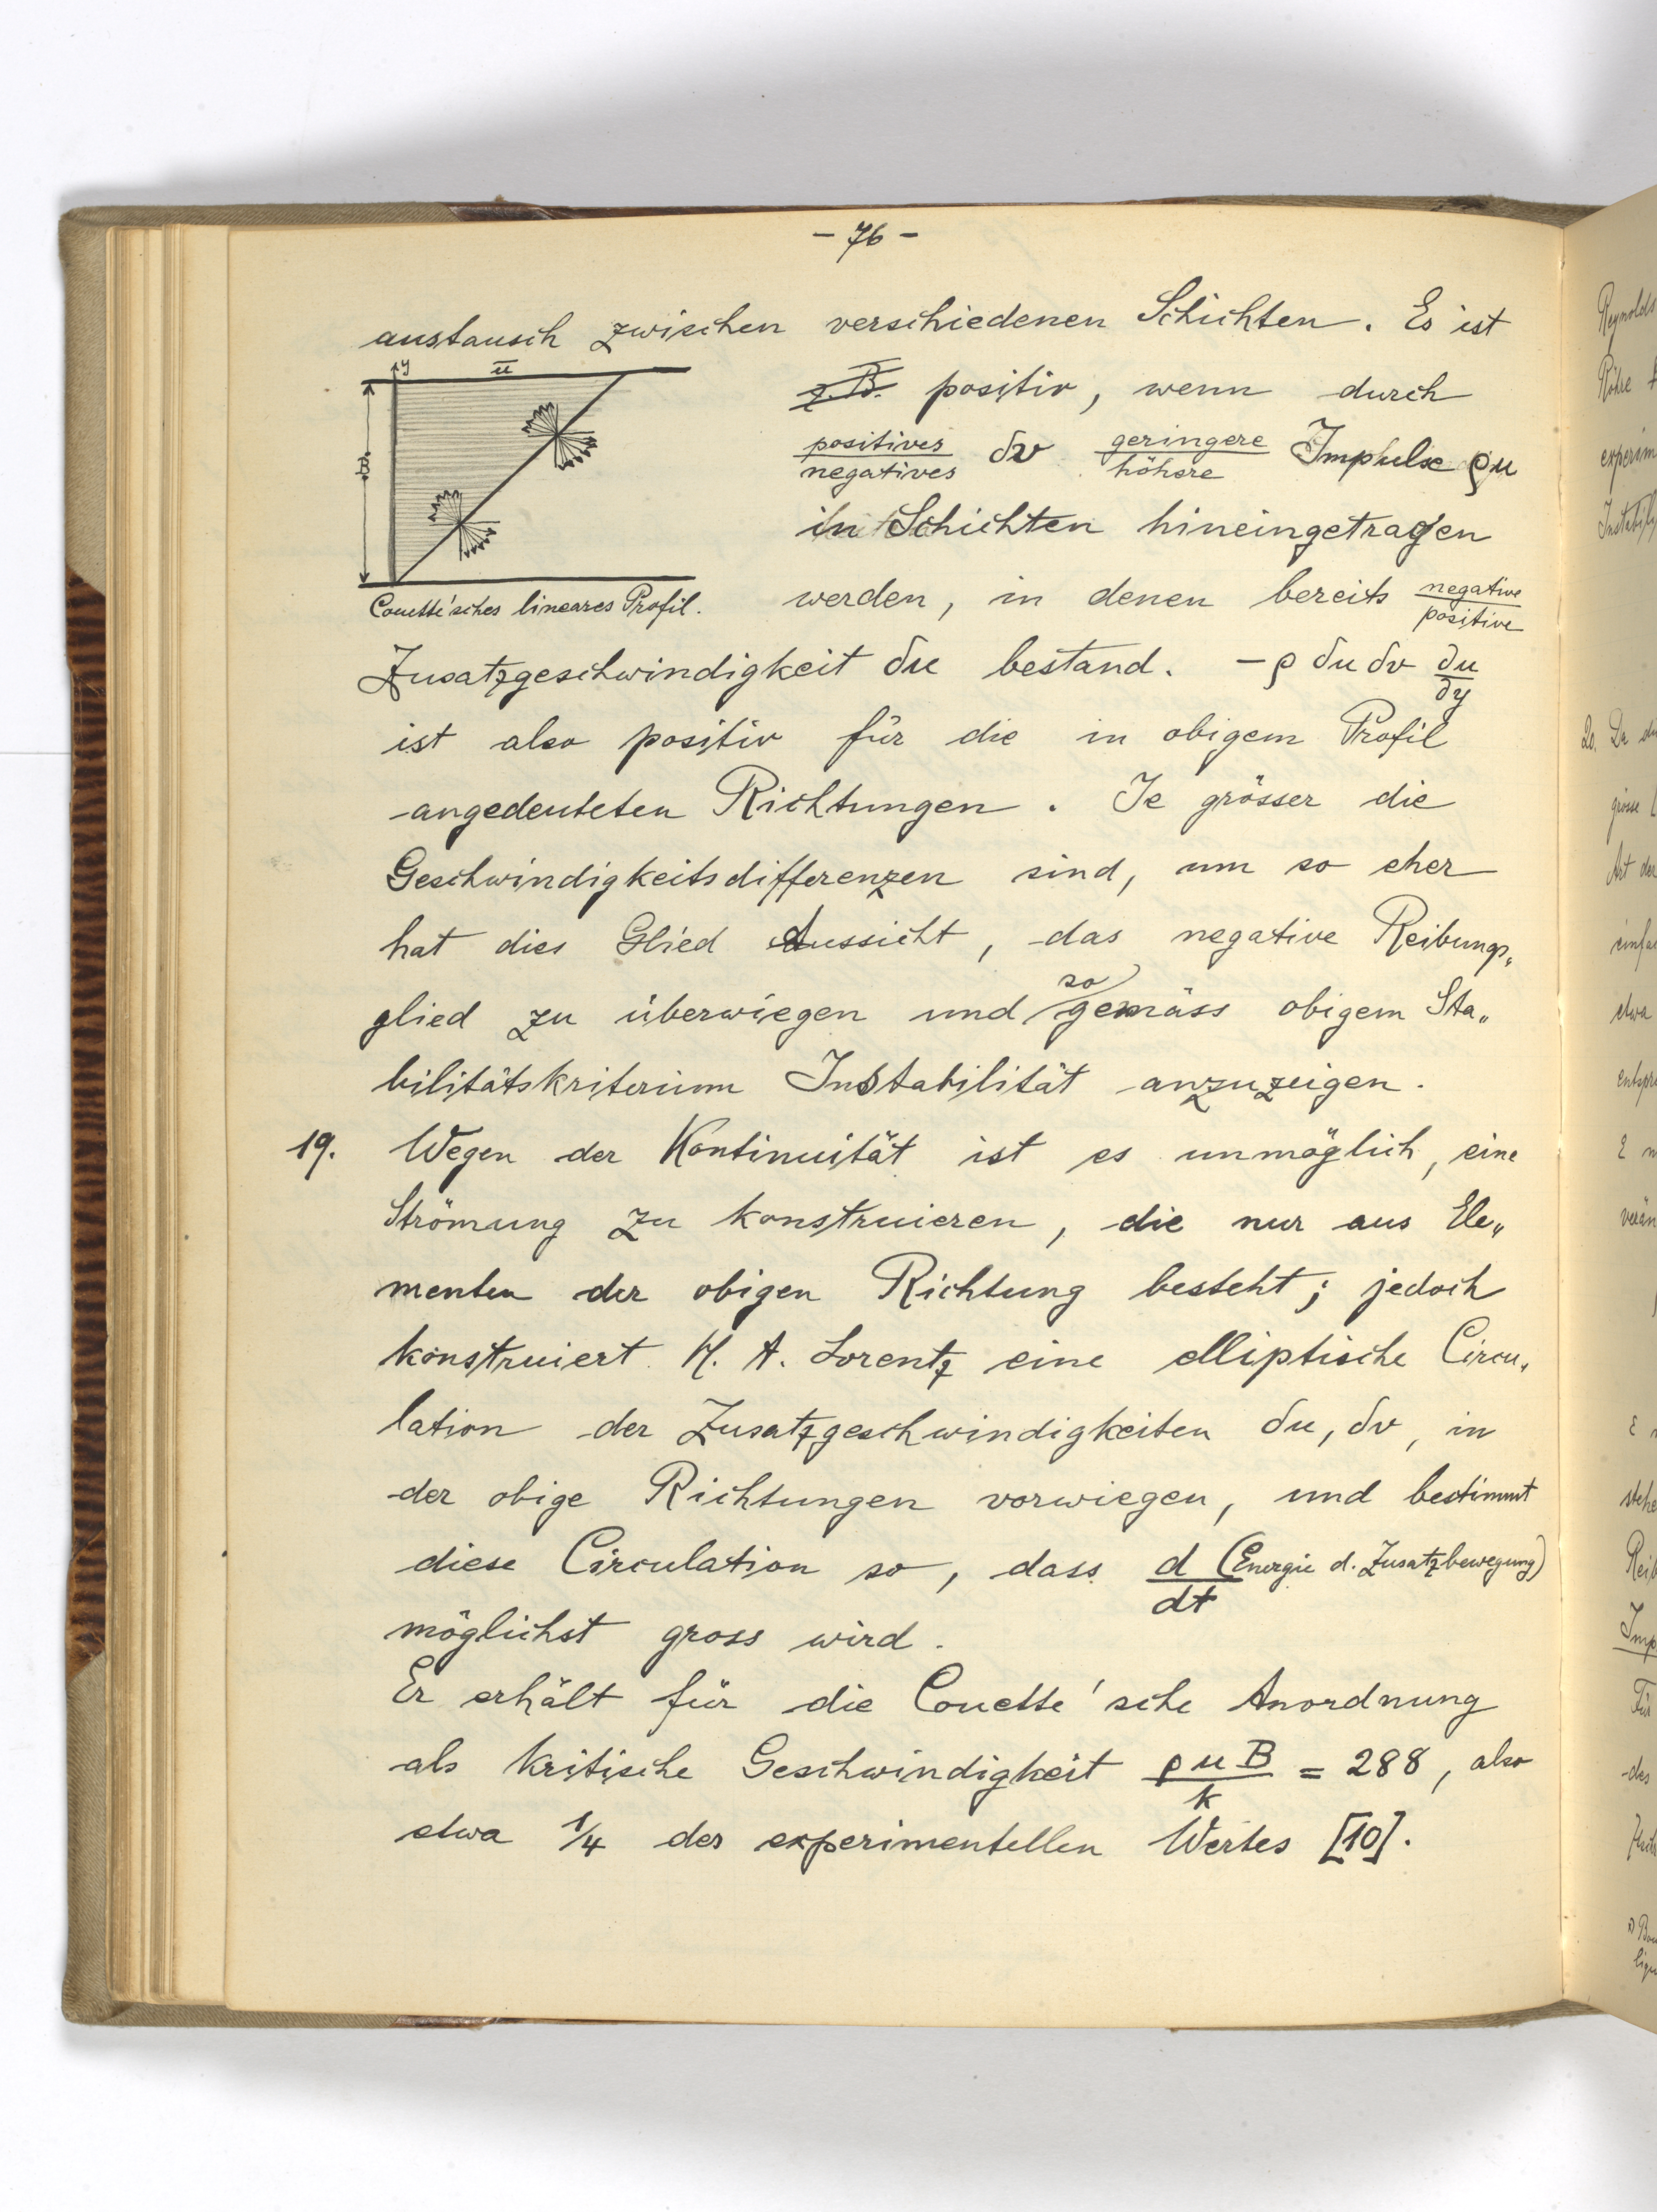 - 76 -
austausch zwischen verschiedenen Schichten. Es ist
z.B. positiv, wenn durch
positives/negatives δv geringere/höhere Impulse ρu
in Schichten hineingetragen
werden, in denen bereits negative/positive
y
u̅
B
Couette'sches lineares Profil.
Zusatzgeschwindigkeit δu bestand. -ρ δu δv ∂u/∂y
ist also positiv für die in obigem Profil
angedeuteten Richtungen. Je grösser die
Geschwindigkeitsdifferenzen sind, um so eher
hat dies Glied Aussicht, das negative Reibungs„
glied zu überwiegen und so gemäss obigem Sta„
bilitätskriterium Instabilität anzuzeigen.
19. Wegen der Kontinuität ist es unmöglich, eine
Strömung zu konstruieren, die nur aus Ele„
menten der obigen Richtung besteht; jedoch
konstruiert H. A. Lorentz eine elliptische Circu„
lation der Zusatzgeschwindigkeiten δu, δv, in
der obige Richtungen vorwiegen, und bestimmt
diese Circulation so, dass d/dt (Energie d. Zusatzbewegung)
möglichst gross wird.
Er erhält für die Couette'sche Anordnung
als kritische Geschwindigkeit ρuB/k = 288, also
etwa 1/4 des experimentellen Wertes [10].
Reynolds
Röhre
20. Da
grosse
Art der
etwa